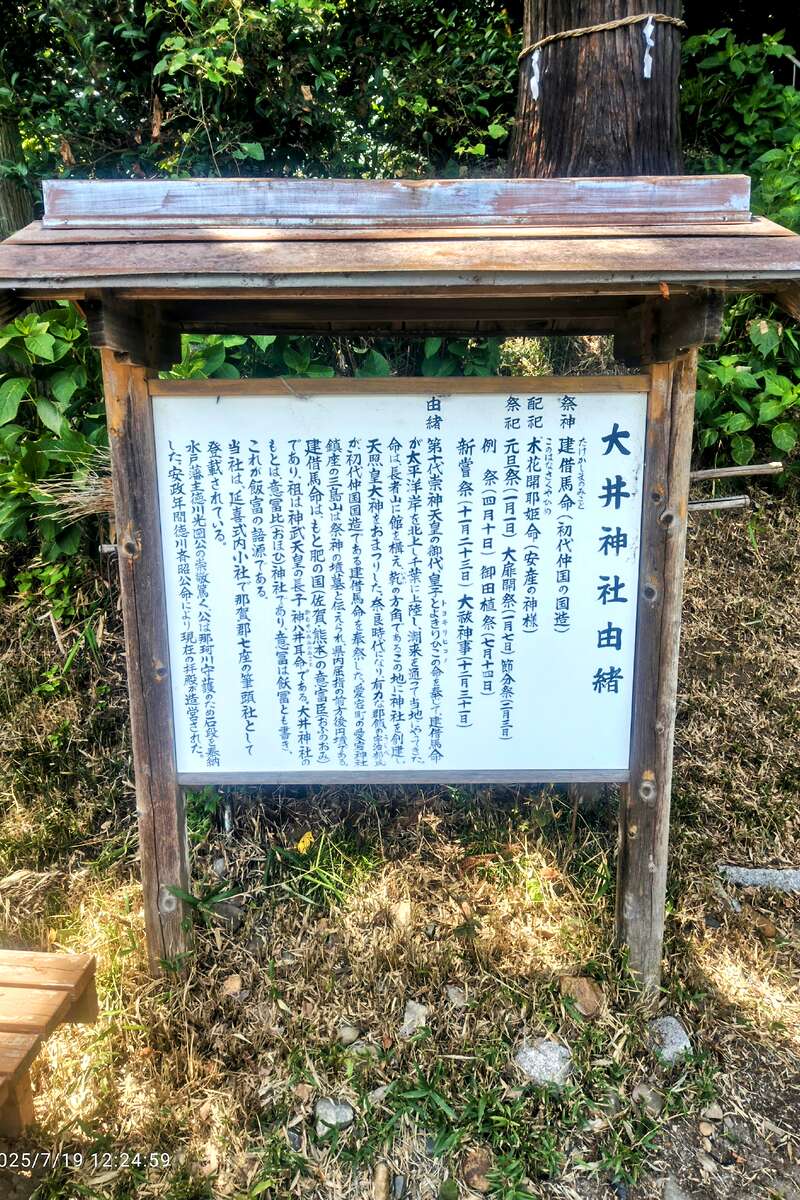 大井神社由緒
祭神 建借馬命(初代仲国の国造)
たけかしまのみこと
配祀 木花開耶姫命(安産の神様)
このはなさくやひめ
祭祀 元旦祭(一月一日) 大扉開祭(一月七日) 節分祭(二月三日)
例 祭(四月十日) 御田植祭(七月十四日)
新嘗祭(十一月二十三日) 大祓神事(十二月三十一日)
由緒 第十代崇神天皇の御代、皇子とよきりひこの命を奉じて建借馬命
が太平洋岸を北上し千葉に上陸し、潮来を通って当地にやってきた。
命は長者山に館を構え、乾の方角であるこの地に神社を創建し
天照皇大神をおまつりした。奈良時代になり有力な郡領の宇治部氏
が初代仲国国造である建借馬命を奉祭した。愛宕町の愛宕神社
鎮座の三島山は祭神の墳墓と伝えられ県内屈指の前方後円墳である。
建借馬命はもと肥の国(佐賀、熊本)の意富臣(おふのおみ)
であり、祖は神武天皇の長子 神八井耳命である。大井神社の
もとは意富比(おほひ)神社であり、意富は飯富とも書き、
これが飯富の語源である。
当社は、延喜式内小社で那賀郡七座の筆頭社として
登載されている。
水戸藩主徳川光圀公の崇敬篤く、公は那珂川守護のため石段を奉納
した。安政年間徳川斉昭公命により現在の拝殿が造営された。
2025/7/19 12:24:59